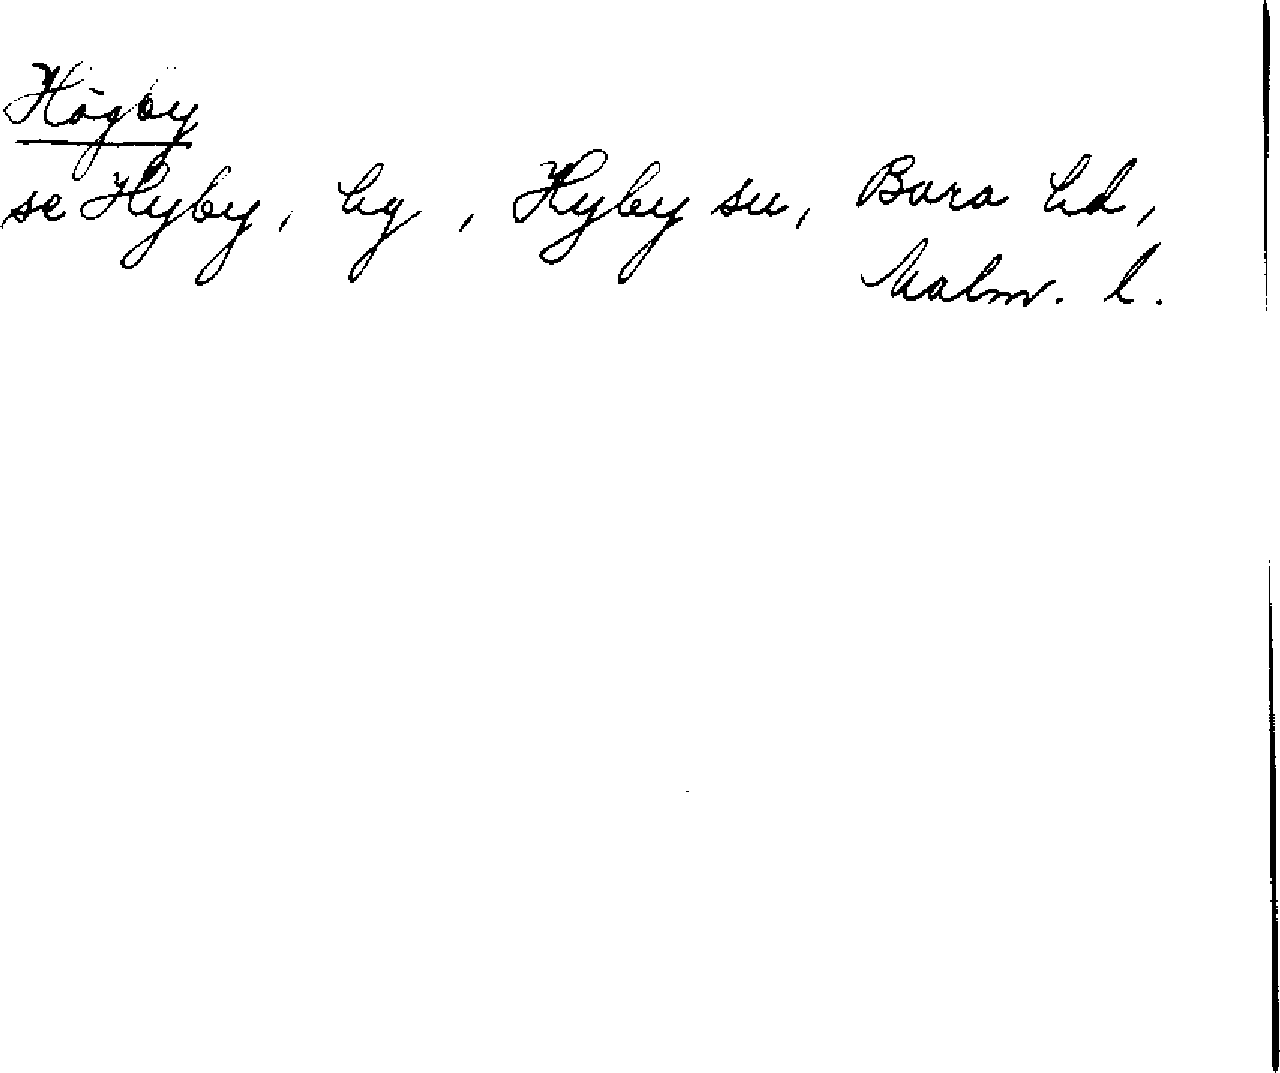 Högby
se Hyby, hg, Hyby sn, Bara hd,
Malm. l.